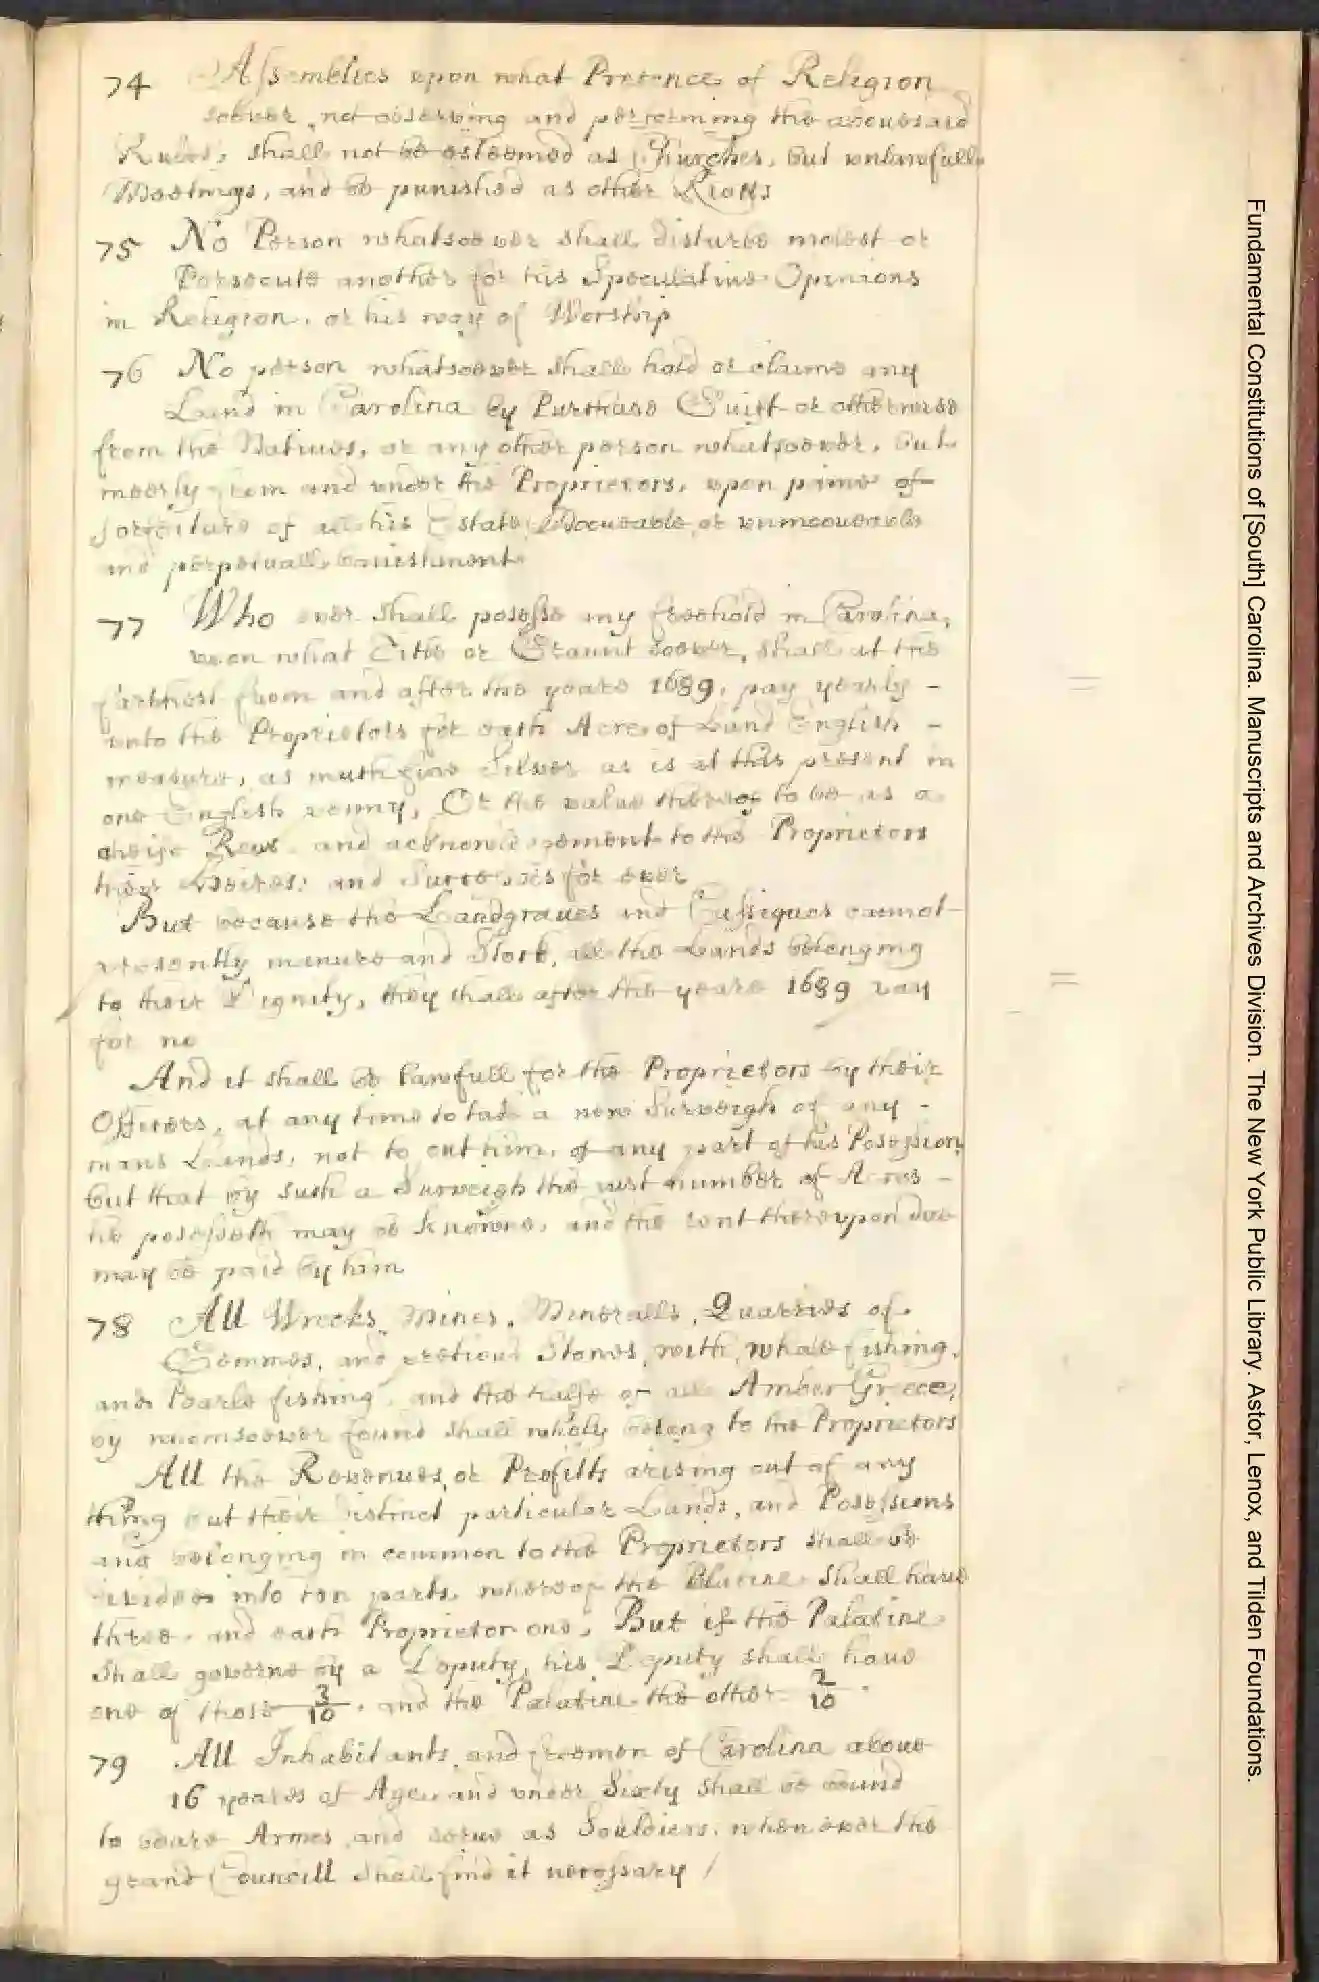 74 Assemblies upon what Pretence of Religion
soever, not observing and performing the abouesaid
Rules, shall not be esteemed as Churches, but unlawfull
Meetings, and be punished as other Riotts
75 No Person whatsoever shall disturbe molest or
Persecute another for his Speculatiue Opinions
in Religion, or his way of Worship
76 No person whatsoever shall hold or claime any
Land in Carolina by Purchase Guift or otherwise
from the Natiues, or any other person whatsoever, but
meerly from and under the Proprietors, upon paine of
forfeiture of all his Estate Mooueable or unmooueable
and perpetuall banishment
77 Who ever shall posesse any freehold in Carolina,
upon what Title or Graunt soever, shall at the
farthest from and after the yeare 1689, pay yearly -
unto the Proprietors for each Acre of Land English -
measure, as much fine Silver as is at this present in
one English penny, Or the value thereof to be as a
cheife Rent and acknowledgement to the Proprietors
their Heires: and Successors for ever
But because the Landgraues and Cassiques cannot
presently manure and Stock, all the Lands belonging
to their Dignity, they shall after the yeare 1689 pay
for no
And it shall be lawfull for the Proprietors by their
Officers, at any time to take a new Surveigh of any -
mans Lands, not to out him, of any part of his Posession,
but that by such a Surveigh the just number of Acres -
he posesseth may be knowne, and the rent thereupon due
may be paid by him
78 All Wrecks, Mines, Mineralls, Quarries of
Gemmes, and pretious Stones, with, whale fishing,
and Pearle fishing, and the halfe of all Amber Greece,
by whomsoever found shall wholy belong to the Proprietors
All the Revenues or Profitts arising out of any
thing but their distinct particular Lands, and Posessions
and belonging in common to the Proprietors shall be
devided into ten parts, whereof the Palatine shall haue
three, and each Proprietor one, But if the Palatine
shall governe by a Deputy, his Deputy shall haue
one of those 3/10, and the Palatine the other 2/10.
79 All Inhabitants, and freemen of Carolina aboue
16 yeares of Age, and under Sixty shall be bound
to beare Armes and serue as Souldiers, when ever the
grand Councill shall find it necessary /
Fundamental Constitutions of [South] Carolina. Manuscripts and Archives Division. The New York Public Library. Astor, Lenox, and Tilden Foundations.